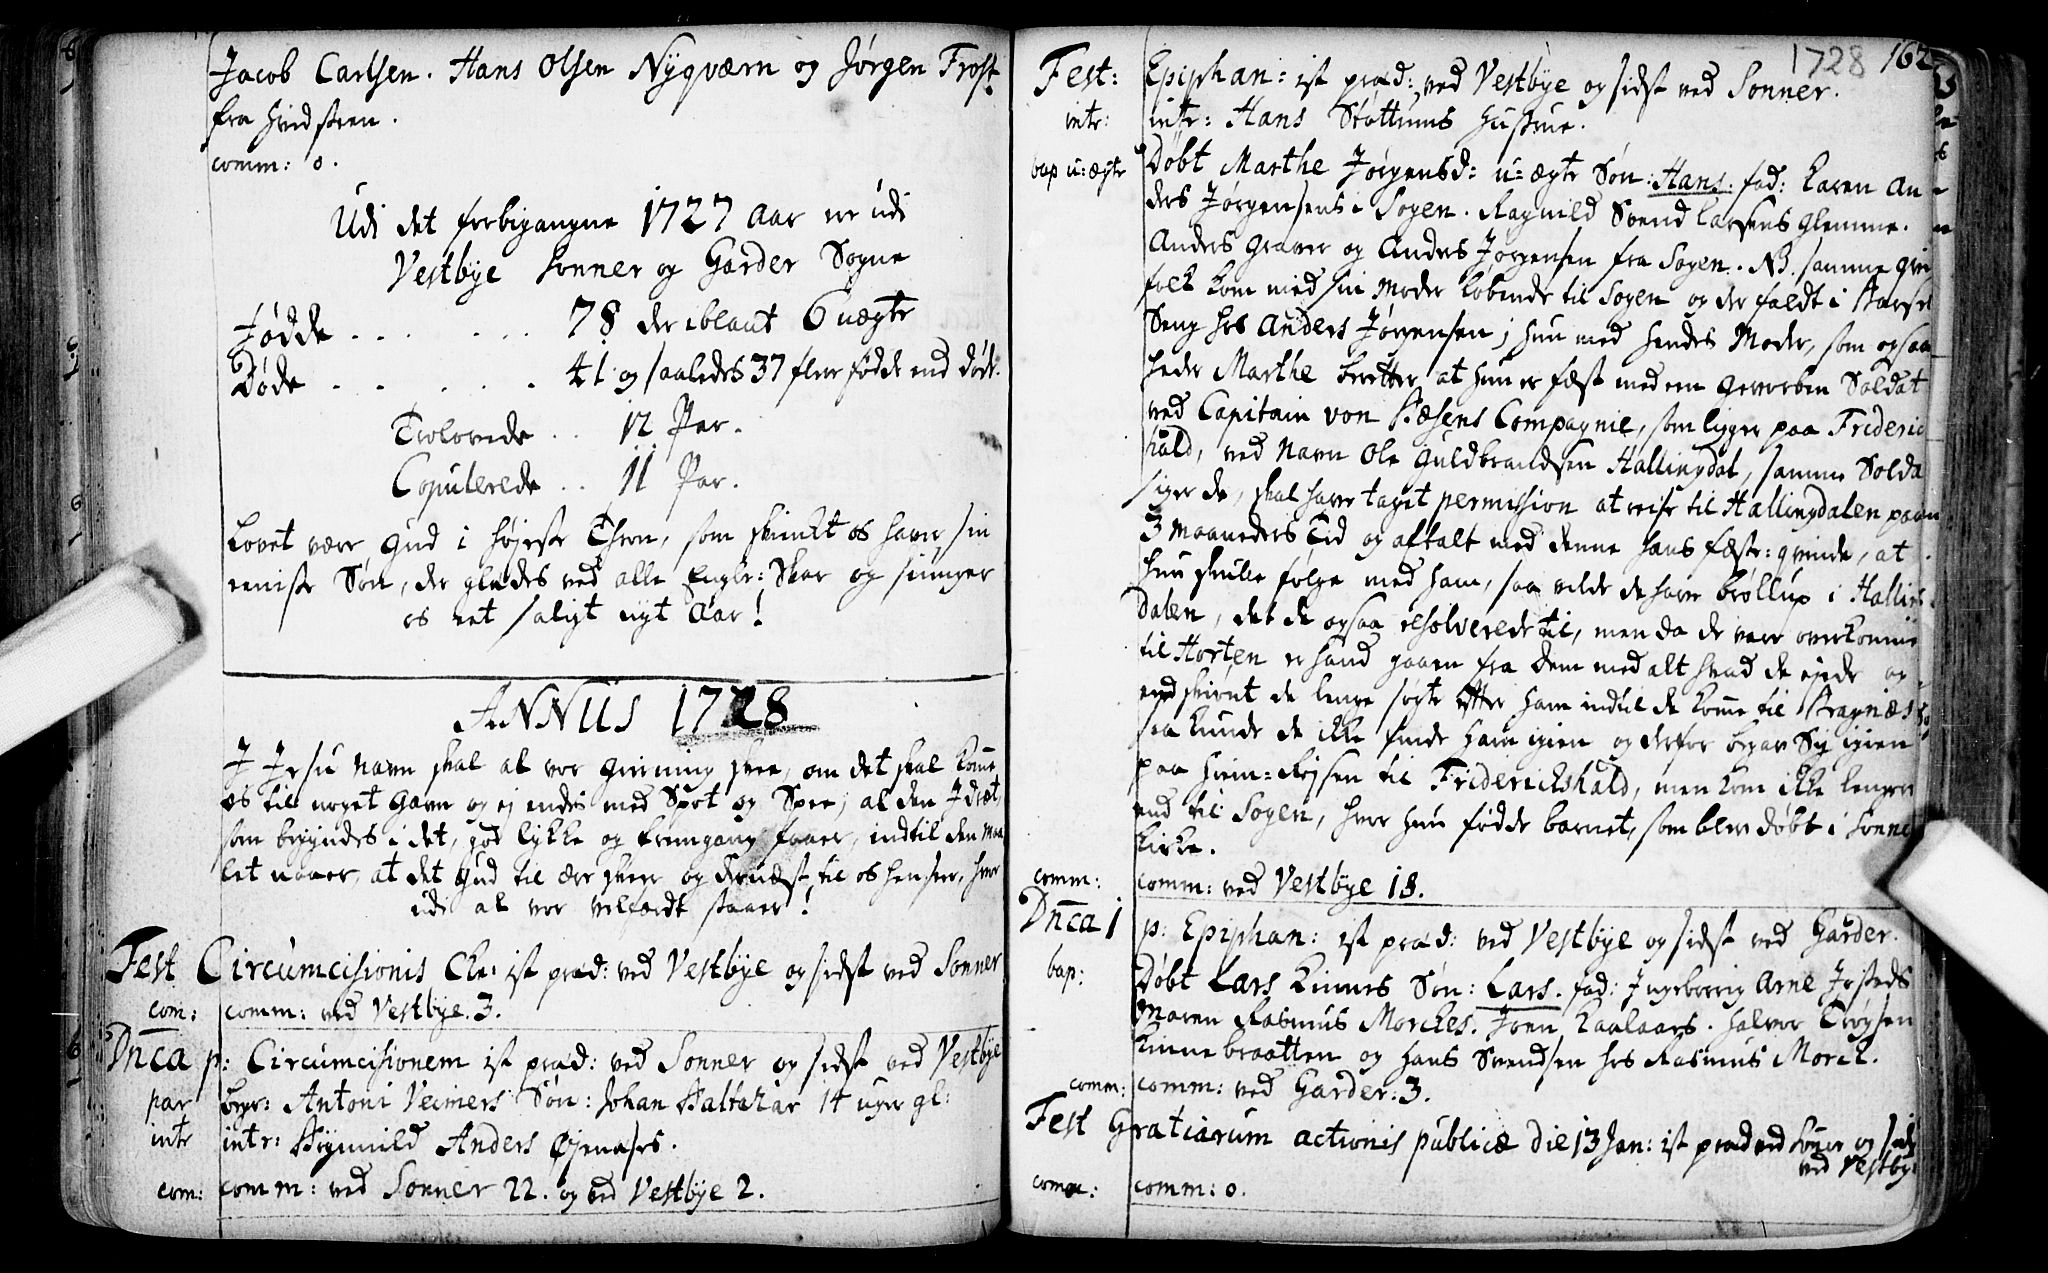 Jacob Carlsen. Hans Olsen Nyqværn og Jørgen Frost
fra Hvidsteen.
comm: 0.
Udi det forbigangne 1727 Aar er udi
Vestbÿe Sonner og Garder Sogne
Fødde . . . . . . 78 der iblant 6 uægte
Døde . . . . . . 41 og saaledes 37 flere fødde end døde.
Trolovede . . 12 Par.
Copulerede . . 11 Par.
Lovet være Gud i højeste Thron, som skienkt os haver sin
eeniste Søn, der glædes ved alle Engle: Skar og siunger
os eet saligt nyt Aar!
ANNUS 1728
I Jesu Navn skal al vor Gierning skee, om det skal komme
os til noget Gavn og ej endes med Spot og Spee; al den Idræt,
som begyndes i det, god lykke og fremgang faaer, indtil den Maa
let naaer, at det Gud til ære skeer og dernæst til os henseer, hvor
udi al vor velfærdt staaer!
Fest Circumcisionis Chr: ist præd: ved Vestbÿe og sidst ved Sonner
com: comm: ved Vestbÿe. 3.
Dnca p: Circumcisionem ist præd: ved Sonner og sidst ved Vestbÿe
par begr: Antoni Veimers Søn: Johan Baltazar 14 uger gl:
intr intr: Anders Øjenæses.
com: comm: ved Sonner 22. og ved Vestbÿe 2.
1728 162
Fest: Epiphan: ist præd: ved Vestbÿe og sidst ved Sonner.
intr: intr: Hans Støttums Hustrue.
bap u:ægte Døbt Marthe Jørgensd: u=ægte Søn: Hans. fad: Karen An
ders Jørgensens i Sogen. Ragnild Svend Larsens Glemme.
Anders Graver og Anders Jørgensen fra Sogen. NB. samme Qvin
folk kom med sin Moder løbende til Sogen og der faldt i Barsel
Seng hos Anders Jørgensen; hun med hendes Moder, som ogsaa
heder Marthe beretter at hun er fæst med een gevorben Soldat
ved Capitain von Compagnie, som ligger paa Frideric
hald, ved Navn Ole Guldbrandsen Hallingdal, samme Solda
siger de, skal have taget permission at reise til Hallingdalen paa en
3 Maaneders Tid og aftalt med denne hans fæste=qvinde, at
hun skulle følge med ham, saa vilde de have brøllup i Halling
dalen, det de ogsaa resolverede til, men da de vare overkomne
til Horten er hand gaaen fra dem med alt hvad de ejede og
endskiønt de lenge søgte efter ham indtil de komme til Bragnæs
saa kunde de ikke finde ham igien og derfor begav Sig igien
paa Hiem=Rejsen til Friderichshald, men kom ikke lenger
end til Sogen, hvor hun fødde barnet, som blev døbt i Sonner
Kirke.
comm: comm: ved Vestbÿe 18.
Dnca 1 p: Epiphan: ist præd: ved Vestbÿe og sidst ved Garder.
bap: Døbt Lars Kinnes Søn: Lars. fad: Ingeborrig Arne
Maren Rasmus Morckes. Joen Kaalaars. Halvor Trøgsen
Kinnebraatten og Hans Svendsen hos Rasmus Morck.
comm: comm: ved Garder: 3.
Fest Gratiarum actionis publicæ die 13 Jan: ist præd ved Soner og sidst
ved Vestbÿe
comm: comm: 0.